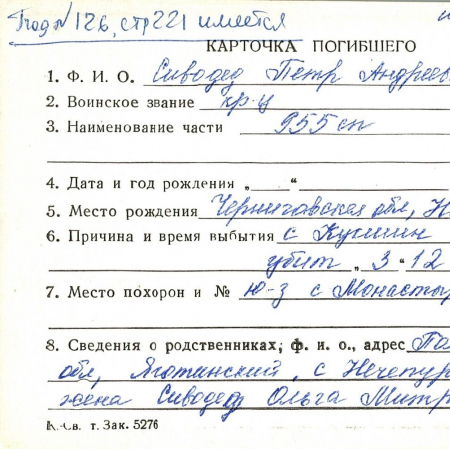 Под № 126, стр 221 имеется
КАРТОЧКА ПОГИБШЕГО
1. Ф. И. О. Сиводед Петр Андреев
2. Воинское звание кр-ц
3. Наименование части 955 сп
4. Дата и год рождения „ “
5. Место рождения Черниговская обл, Н
6. Причина и время выбытия с
убит „ 3 “ 12
7. Место похорон и № ю-з с Монастыр
8. Сведения о родственниках, ф. и. о., адрес Пол
обл, Яготинский, с Нечепур
жена Сиводед Ольга Митр
К.-Св. т. Зак. 5276